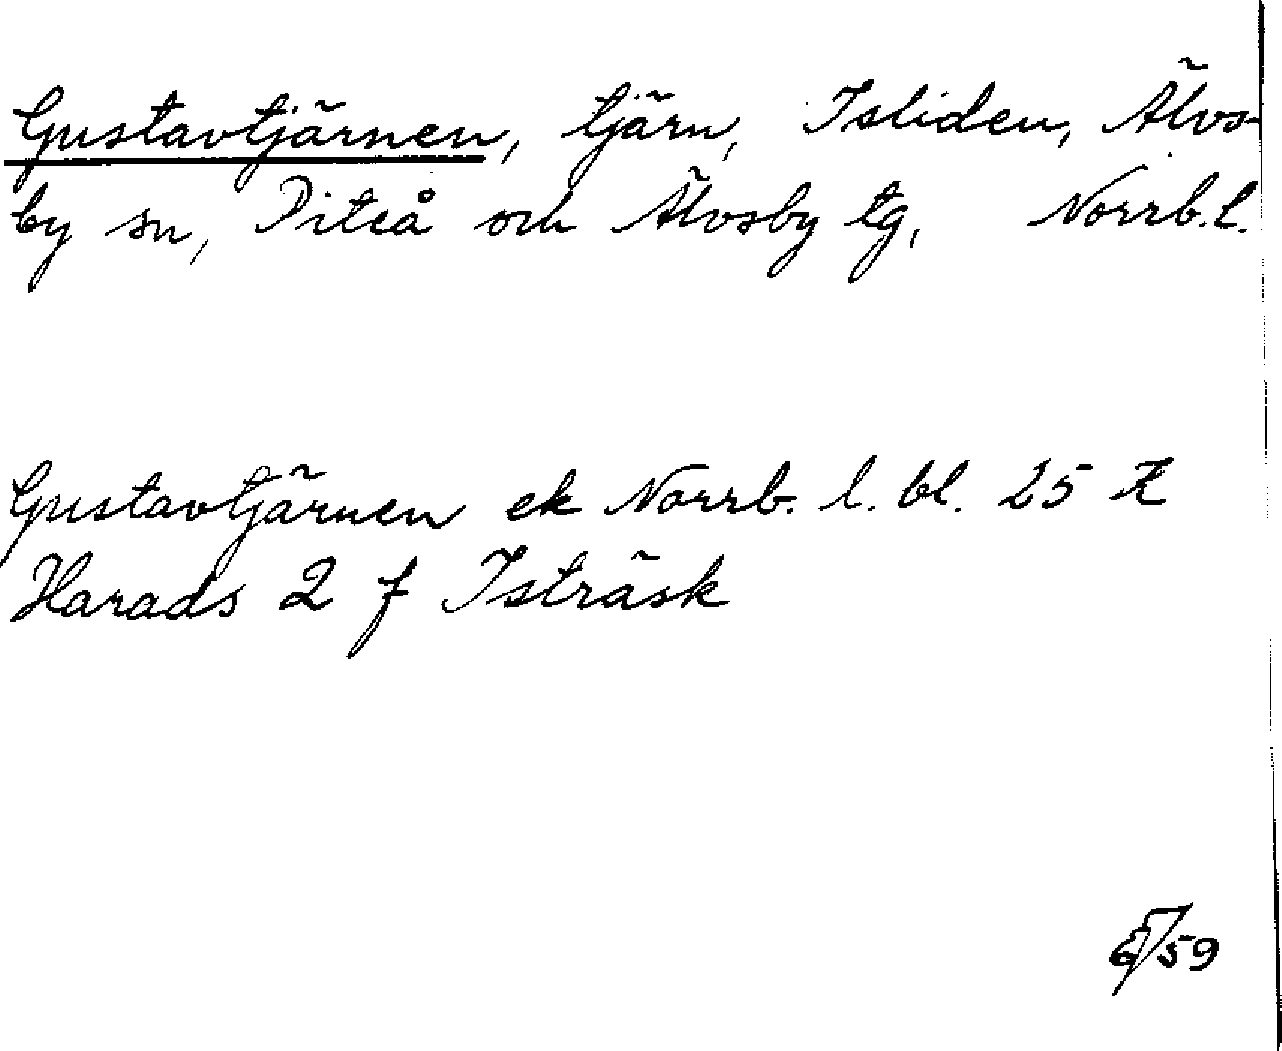 Gustavtjärnen, tjärn, Isliden, Älvs-
by sn, Piteå och Älvsby tg, Norrb.l.
Gustavtjärnen ek Norrb. l. bl. 25
Harads 2 f Isträsk
59